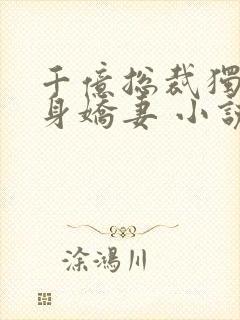 千億總裁獨
身嬌妻 小說
涂鴻川